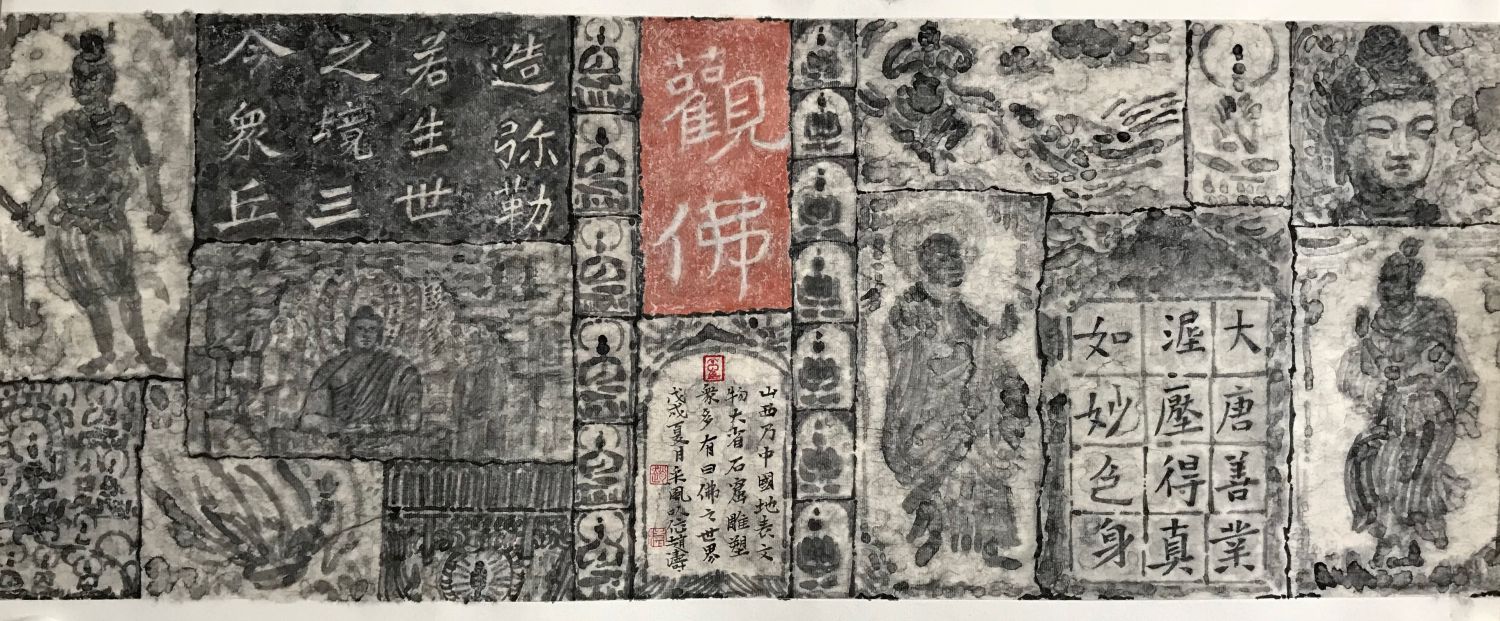 大唐善業
埿壓得真
如妙色身
觀佛
山西乃中國地表文
物大省石窟雕塑
衆多有曰佛之世界
戊戌夏月采風
造弥勒
若生世
之境三
今衆丘